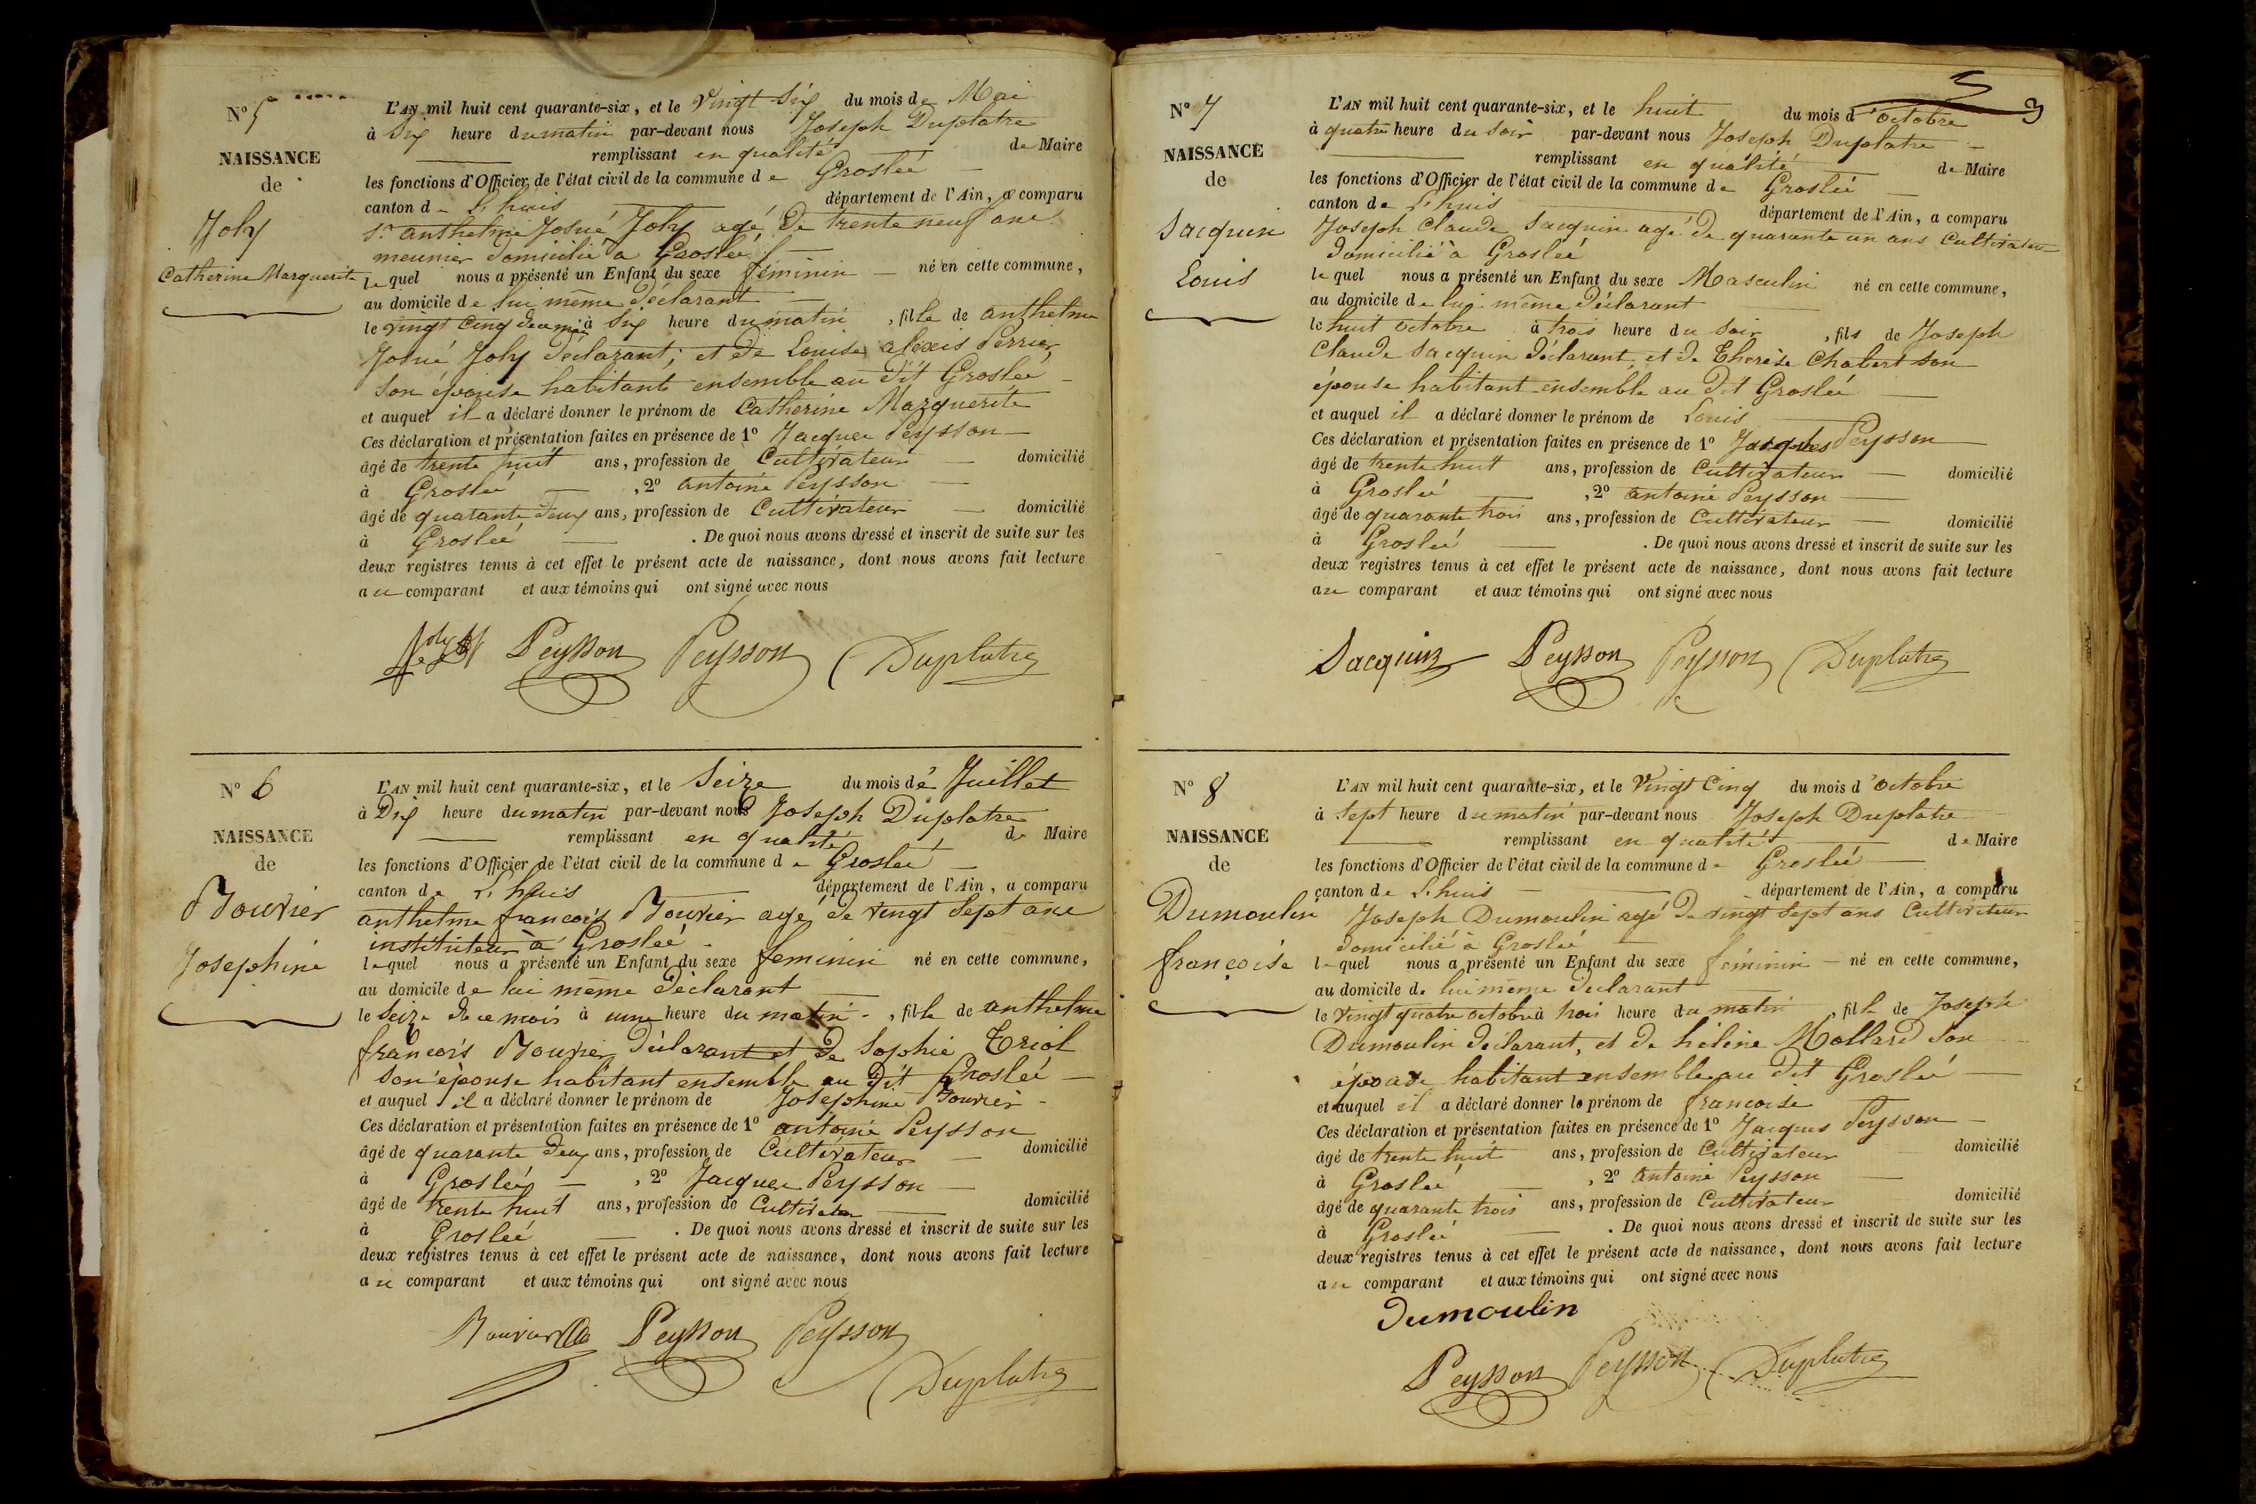 N° 5
NAISSANCE
de
Joly
Catherine Marguerite
L'AN mil huit cent quarante-six, et le vingt six du mois de Mai
à six heure du matin par-devant nous Joseph Duplatre
remplissant en qualité de Maire
les fonctions d'Officier de l'état civil de la commune de Groslée
canton de L'huis département de l'Ain, a comparu
Sr anthelme Josué Joly agé de trente neuf ans
meunier domicilié à Groslée
lequel nous a présenté un Enfant du sexe féminin né en cette commune,
au domicile de lui même déclarant
le vingt cinq de ce mois à six heure du matin, fille de anthelme
Josué Joly déclarant; et de Louise alexis Perrier
son épouse habitant ensemble au dit Groslée
et auquel il a déclaré donner le prénom de Catherine Marguerite
Ces déclaration et présentation faites en présence de 1° Jacques Peysson
âgé de trente huit ans, profession de Cultivateur domicilié
à Groslée, 2° antoine Peysson
âgé de quarante deux ans, profession de Cultivateur domicilié
à Groslée. De quoi nous avons dressé et inscrit de suite sur les
deux registres tenus à cet effet le présent acte de naissance, dont nous avons fait lecture
au comparant et aux témoins qui ont signé avec nous
Joly Peysson Peysson Duplatre
N° 6
NAISSANCE
de
Bouvier
Josephine
L'AN mil huit cent quarante-six, et le Seize du mois de Juillet
à Dix heure du matin par-devant nous Joseph Duplatre
remplissant en qualité de Maire
les fonctions d'Officier de l'état civil de la commune de Groslée
canton de L'huis département de l'Ain, a comparu
anthelme francois Bouvier agé de vingt sept ans
instituteur à Groslée
lequel nous a présenté un Enfant du sexe feminin né en cette commune,
au domicile de lui même déclarant
le Seize de ce mois à une heure du matin, fille de anthelme
francois Bouvier déclarant et de Sophie Triol
son épouse habitant ensemble au dit Groslée
et auquel il a déclaré donner le prénom de Joséphine Bouvier
Ces déclaration et présentation faites en présence de 1° antoine Peysson
âgé de quarante deux ans, profession de Cultivateur domicilié
à Groslée, 2° Jacques Peysson
âgé de trente huit ans, profession de Cultivateur domicilié
à Groslée. De quoi nous avons dressé et inscrit de suite sur les
deux registres tenus à cet effet le présent acte de naissance, dont nous avons fait lecture
au comparant et aux témoins qui ont signé avec nous
Bouvier Peysson Peysson
Duplatre
3
N° 7
NAISSANCE
de
Sacquin
Louis
L'AN mil huit cent quarante-six, et le huit du mois d'octobre
à quatre heure du soir par-devant nous Joseph Duplatre
remplissant en qualité de Maire
les fonctions d'Officier de l'état civil de la commune de Groslée
canton de L'huis département de l'Ain, a comparu
Joseph Claude Sacquin agé de quarante un ans Cultivateur
domicilié à Groslée
lequel nous a présenté un Enfant du sexe Masculin né en cette commune,
au domicile de lui même déclarant
le huit octobre à trois heure du soir, fils de Joseph
Claude Sacquin déclarant, et de Therèse Chabert son
épouse habitant ensemble au dit Groslée
et auquel il a déclaré donner le prénom de Louis
Ces déclaration et présentation faites en présence de 1° Jacques Peysson
âgé de trente huit ans, profession de Cultivateur domicilié
à Groslée, 2° antoine Peysson
âgé de quarante trois ans, profession de Cultivateur domicilié
à Groslée. De quoi nous avons dressé et inscrit de suite sur les
deux registres tenus à cet effet le présent acte de naissance, dont nous avons fait lecture
au comparant et aux témoins qui ont signé avec nous
Sacquin Peysson Peysson Duplatre
N° 8
NAISSANCE
de
Dumoulin
françoise
L'AN mil huit cent quarante-six, et le vingt cinq du mois d'octobre
à sept heure du matin par-devant nous Joseph Duplatre
remplissant en qualité de Maire
les fonctions d'Officier de l'état civil de la commune de Groslée
canton de L'huis département de l'Ain, a comparu
Joseph Dumoulin agé de vingt sept ans Cultivateur
domicilié à Groslée
lequel nous a présenté un Enfant du sexe féminin né en cette commune,
au domicile de lui même déclarant
le vingt quatre octobre à trois heure du matin, fille de Joseph
Dumoulin déclarant, et de hélène Mollard son
épouse habitant ensemble au dit Groslée
et auquel il a déclaré donner le prénom de francoise
Ces déclaration et présentation faites en présence de 1° Jacques Peysson
âgé de trente huit ans, profession de Cultivateur domicilié
à Groslée, 2° antoine Peysson
âgé de quarante trois ans, profession de Cultivateur domicilié
à Groslée. De quoi nous avons dressé et inscrit de suite sur les
deux registres tenus à cet effet le présent acte de naissance, dont nous avons fait lecture
au comparant et aux témoins qui ont signé avec nous
Dumoulin
Peysson Peysson Duplatre